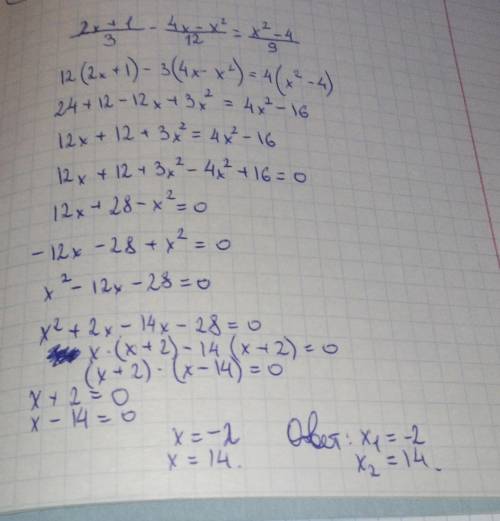 (2x+1)/3 - (4x-x²)/12 = (x²-4)/9
12(2x+1)-3(4x-x²)=4(x²-4)
24+12-12x+3x²=4x²-16
12x+12+3x²=4x²-16
12x+12+3x²-4x²+16=0
12x+28-x²=0
-12x-28+x²=0
x²-12x-28=0
x²+2x-14x-28=0
x·(x+2)-14(x+2)=0
(x+2)·(x-14)=0
x+2=0
x-14=0
x=-2
x=14.
Ответ: x₁=-2
x₂=14.